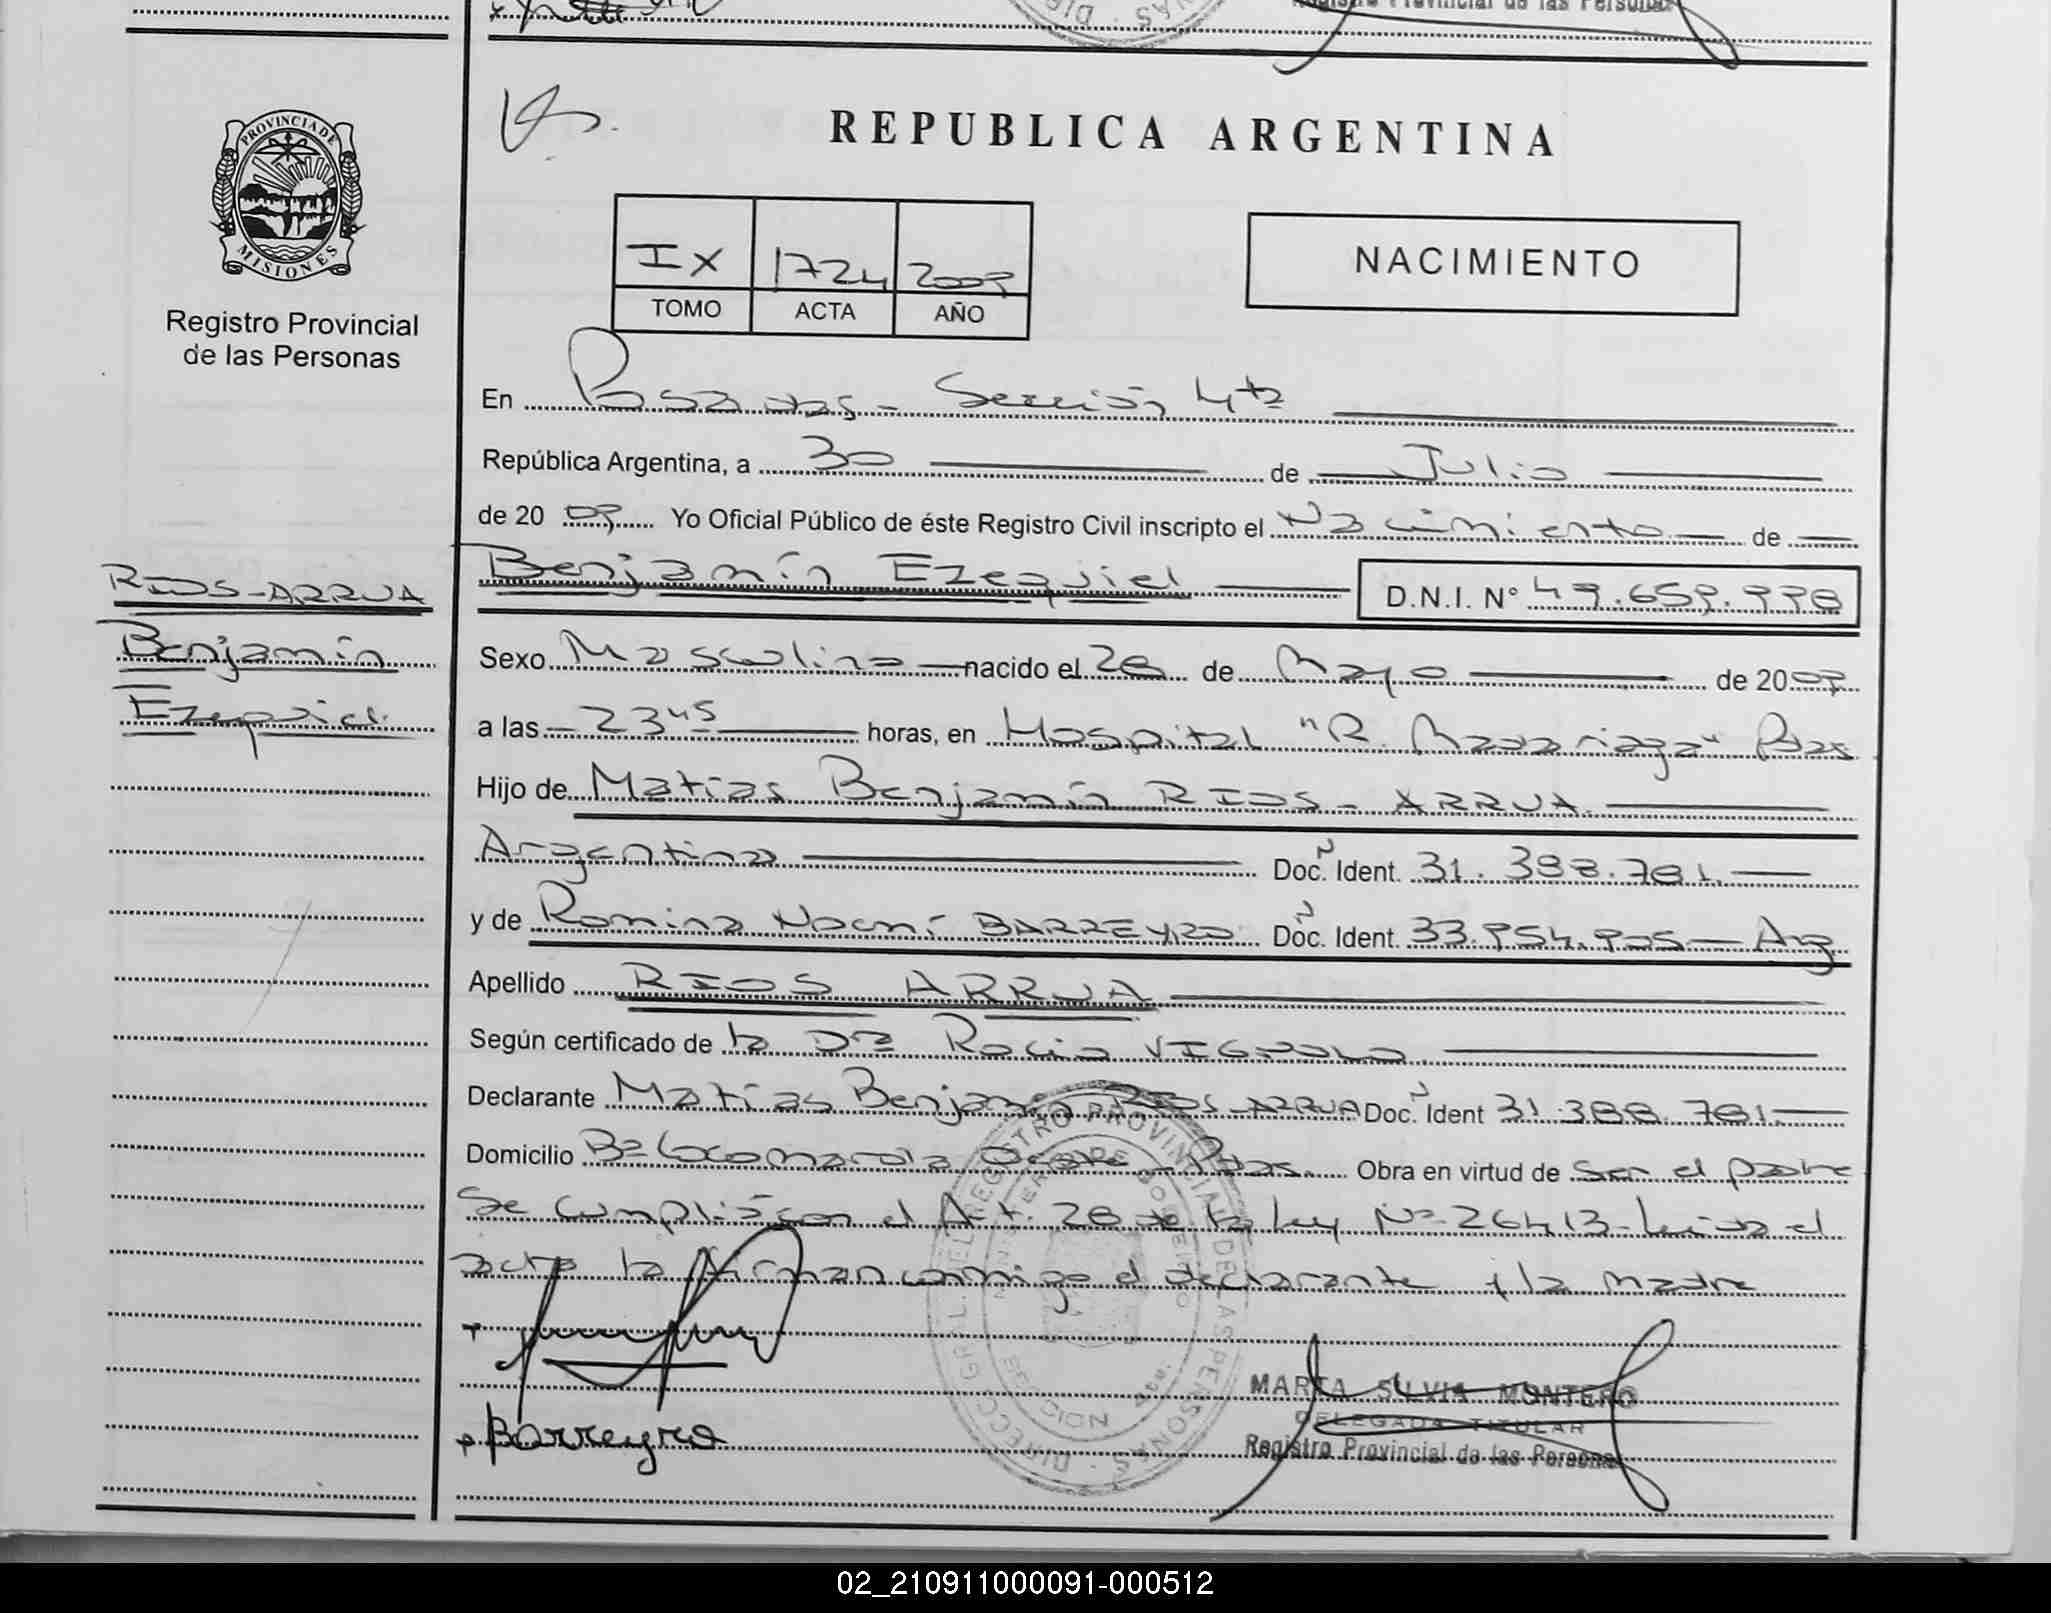 Registro Provincial de las Personas
PROVINCIA DE
MISIONES
Registro Provincial
de las Personas
REPUBLICA ARGENTINA
IX 1724 2009
TOMO ACTA AÑO
NACIMIENTO
En Posadas - Sección 4ta
República Argentina, a 30 de Julio
de 20 09 Yo Oficial Público de éste Registro Civil inscripto el Nacimiento de
Benjamín Ezequiel D.N.I. Nº 49.659.998
RIOS-ARRUA
Benjamín
Ezequiel
Sexo Masculino nacido el 28 de Mayo de 2009
a las 23 45 horas, en Hospital "R. Madariaga" Pdas
Hijo de Matías Benjamín RIOS - ARRUA
Argentina Doc. Ident. 31.388.781
y de Romina Noemí BARREYRO Doc. Ident. 33.954.905 - Arg
Apellido RIOS ARRUA
Según certificado de la Dra Rocio VIGNOLO
Declarante Matías Benjamín RIOS - ARRUA Doc. Ident 31.388.781
Domicilio Bº Cocomarola Oeste - Pdas. Obra en virtud de ser el padre
Se cumplió con el Art. 28 de la Ley Nº 26413 - Leida el
acta la firman conmigo el declarante y la madre
Barreyro
MARTA SILVIA MONTERO
DELEGADA TITULAR
Registro Provincial de las Personas
DIRECC. GRAL. DEL REGISTRO PROVINCIAL DE LAS PERSONAS
MINISTERIO DE GOBIERNO
02_210911000091-000512